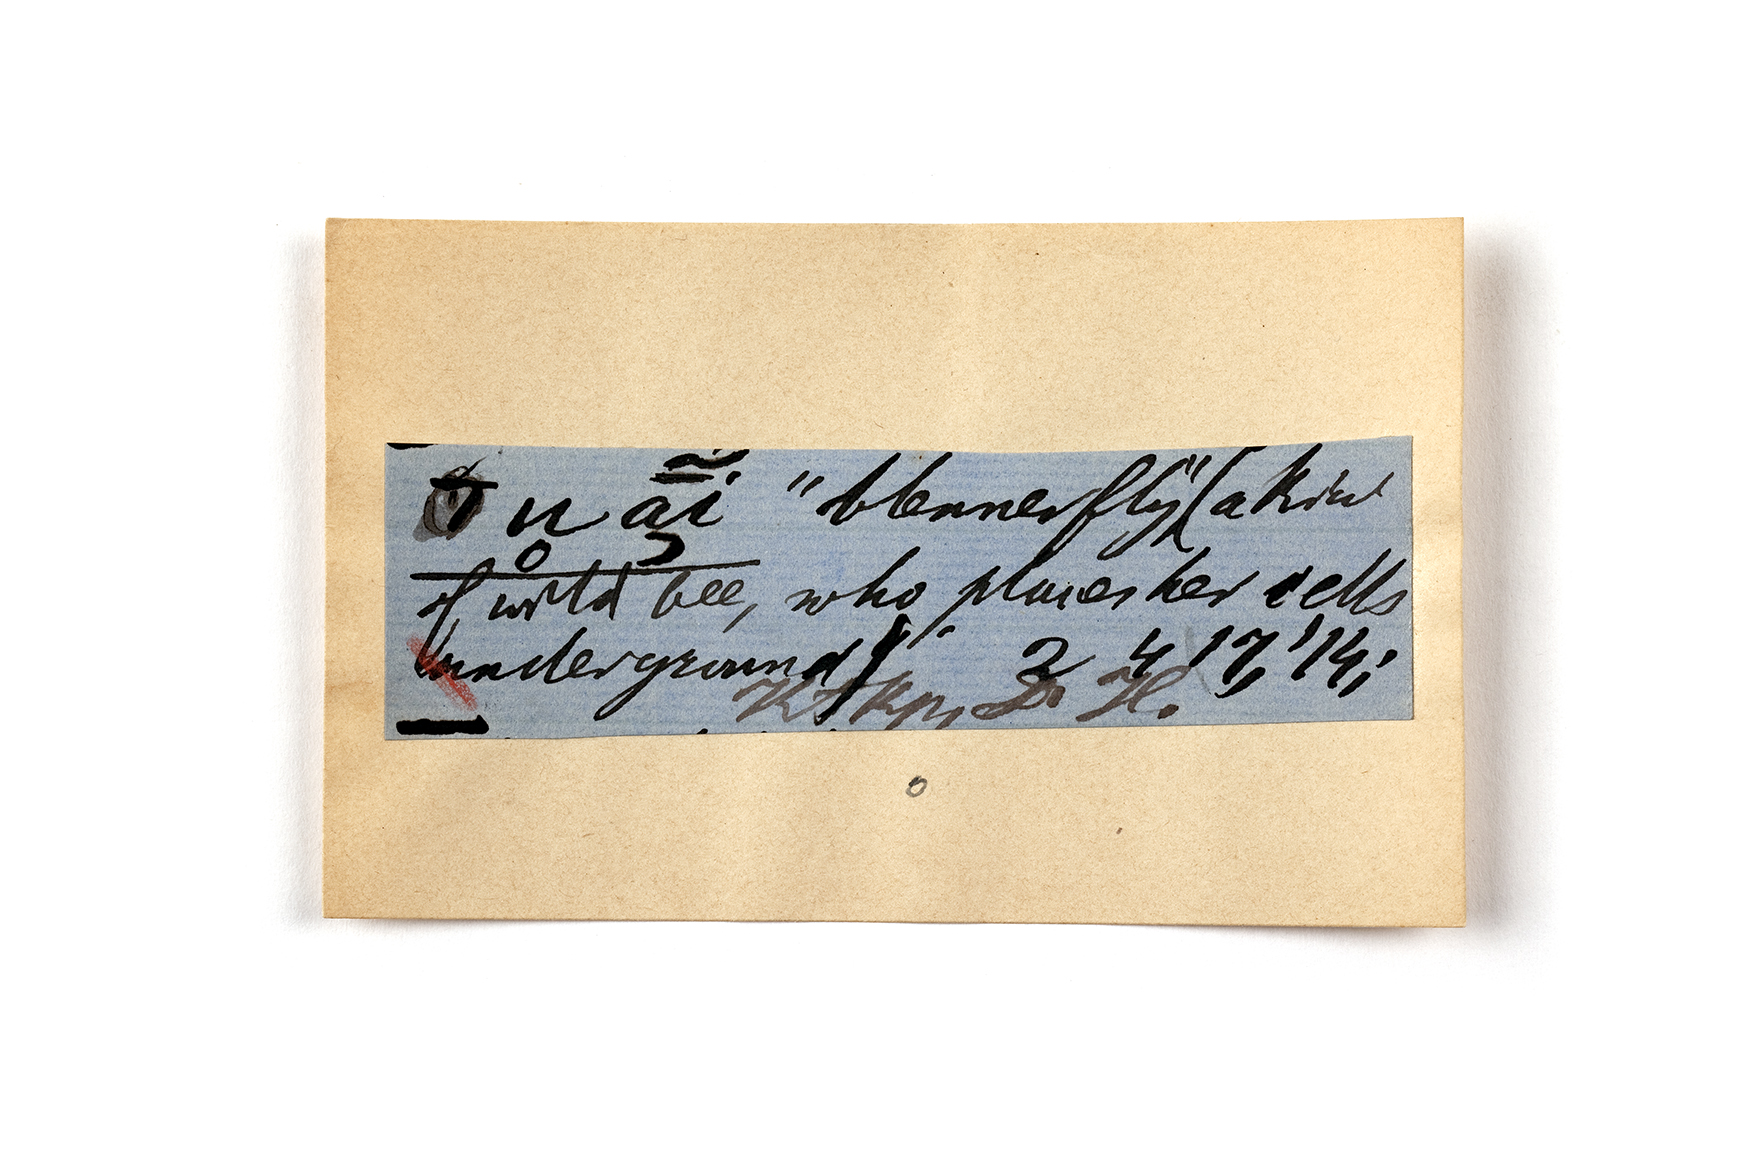 "blennerfly" (a kind
of wild bee, who places her cells
underground)". 2 4 17, '14,
Ktkp, Dr. H.